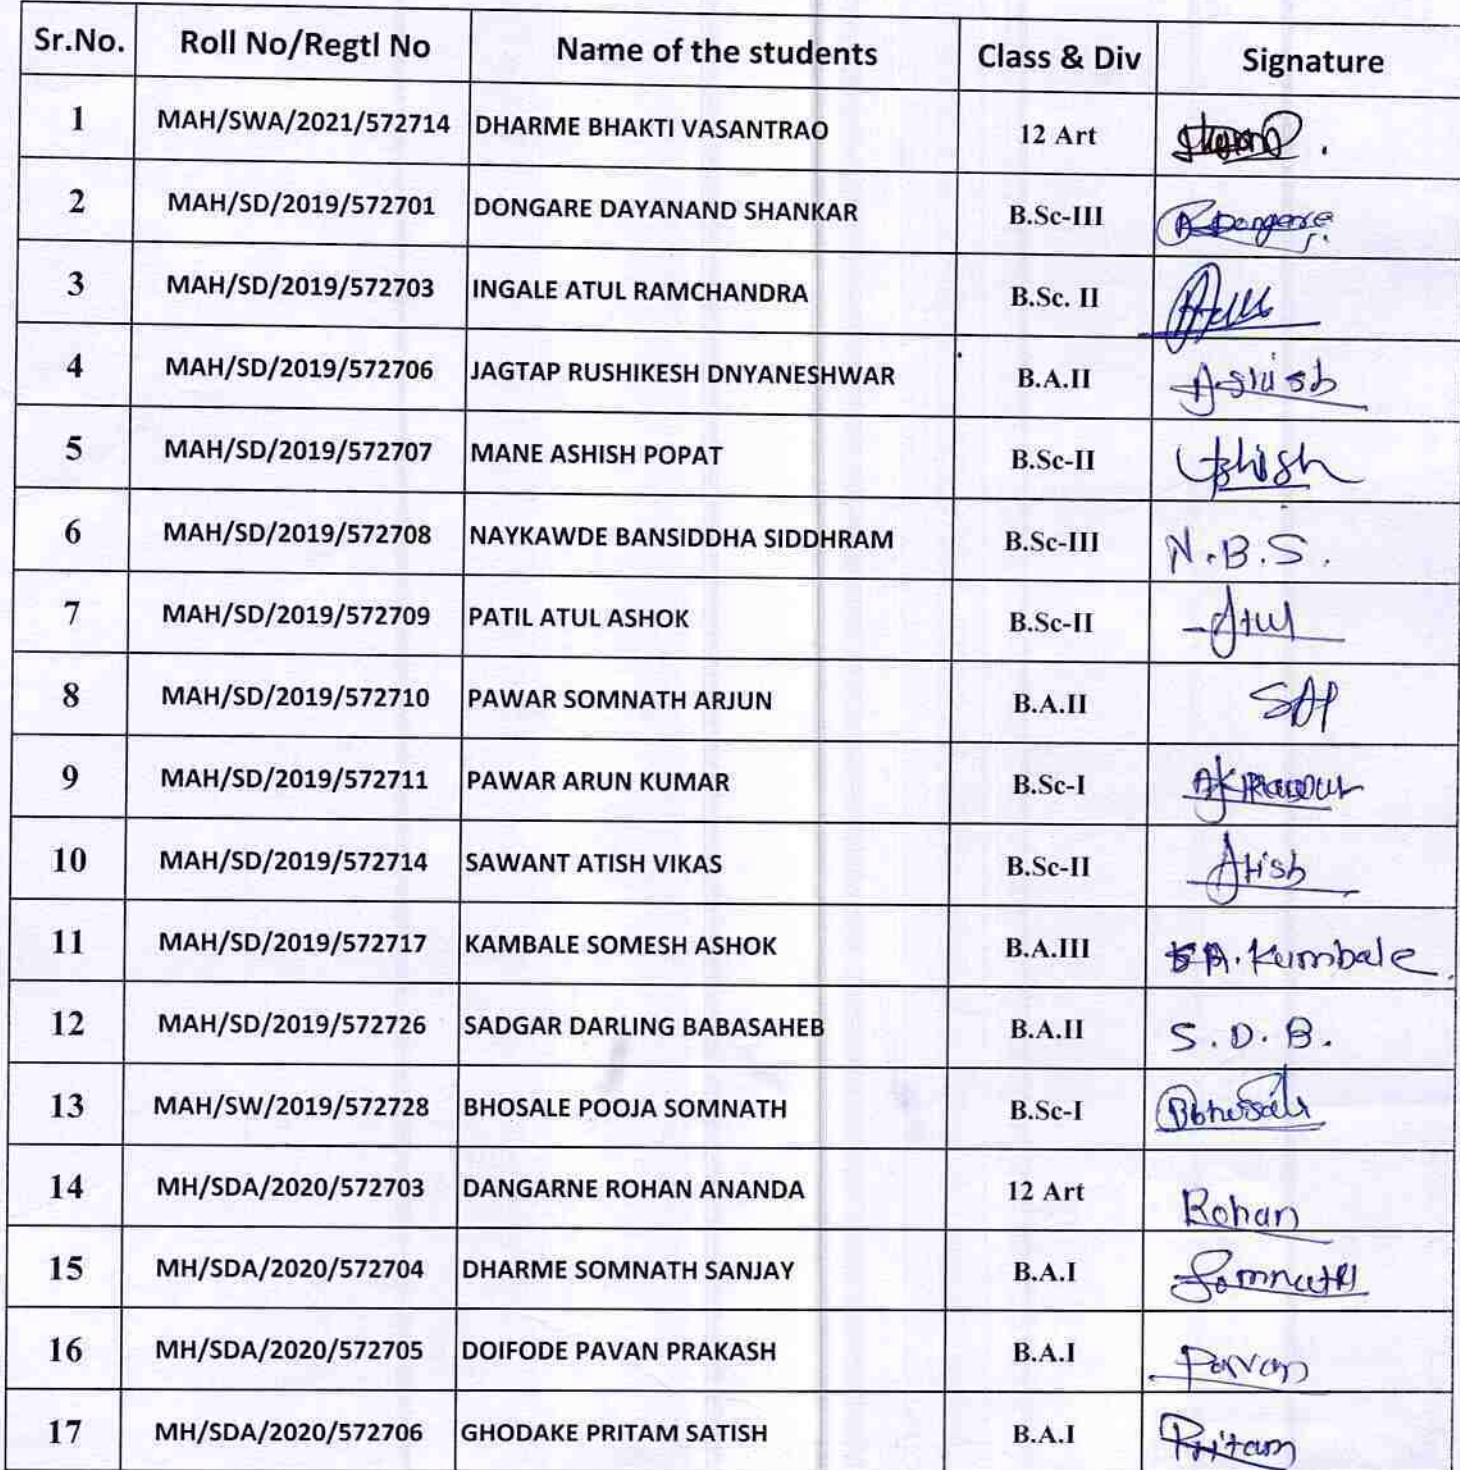 Sr.No. Roll No/Regtl No Name of the students Class & Div Signature
1 MAH/SWA/2021/572714 DHARME BHAKTI VASANTRAO 12 Art
2 MAH/SD/2019/572701 DONGARE DAYANAND SHANKAR B.Sc-III
3 MAH/SD/2019/572703 INGALE ATUL RAMCHANDRA B.Sc. II
4 MAH/SD/2019/572706 JAGTAP RUSHIKESH DNYANESHWAR B.A.II
5 MAH/SD/2019/572707 MANE ASHISH POPAT B.Sc-II Ashish
6 MAH/SD/2019/572708 NAYKAWDE BANSIDDHA SIDDHRAM B.Sc-III N.B.S.
7 MAH/SD/2019/572709 PATIL ATUL ASHOK B.Sc-II Atul
8 MAH/SD/2019/572710 PAWAR SOMNATH ARJUN B.A.II SAP
9 MAH/SD/2019/572711 PAWAR ARUN KUMAR B.Sc-I
10 MAH/SD/2019/572714 SAWANT ATISH VIKAS B.Sc-II Atish
11 MAH/SD/2019/572717 KAMBALE SOMESH ASHOK B.A.III Kambale
12 MAH/SD/2019/572726 SADGAR DARLING BABASAHEB B.A.II S.D.B.
13 MAH/SW/2019/572728 BHOSALE POOJA SOMNATH B.Sc-I
14 MH/SDA/2020/572703 DANGARNE ROHAN ANANDA 12 Art Rohan
15 MH/SDA/2020/572704 DHARME SOMNATH SANJAY B.A.I Somnath
16 MH/SDA/2020/572705 DOIFODE PAVAN PRAKASH B.A.I Pavan
17 MH/SDA/2020/572706 GHODAKE PRITAM SATISH B.A.I Pritam